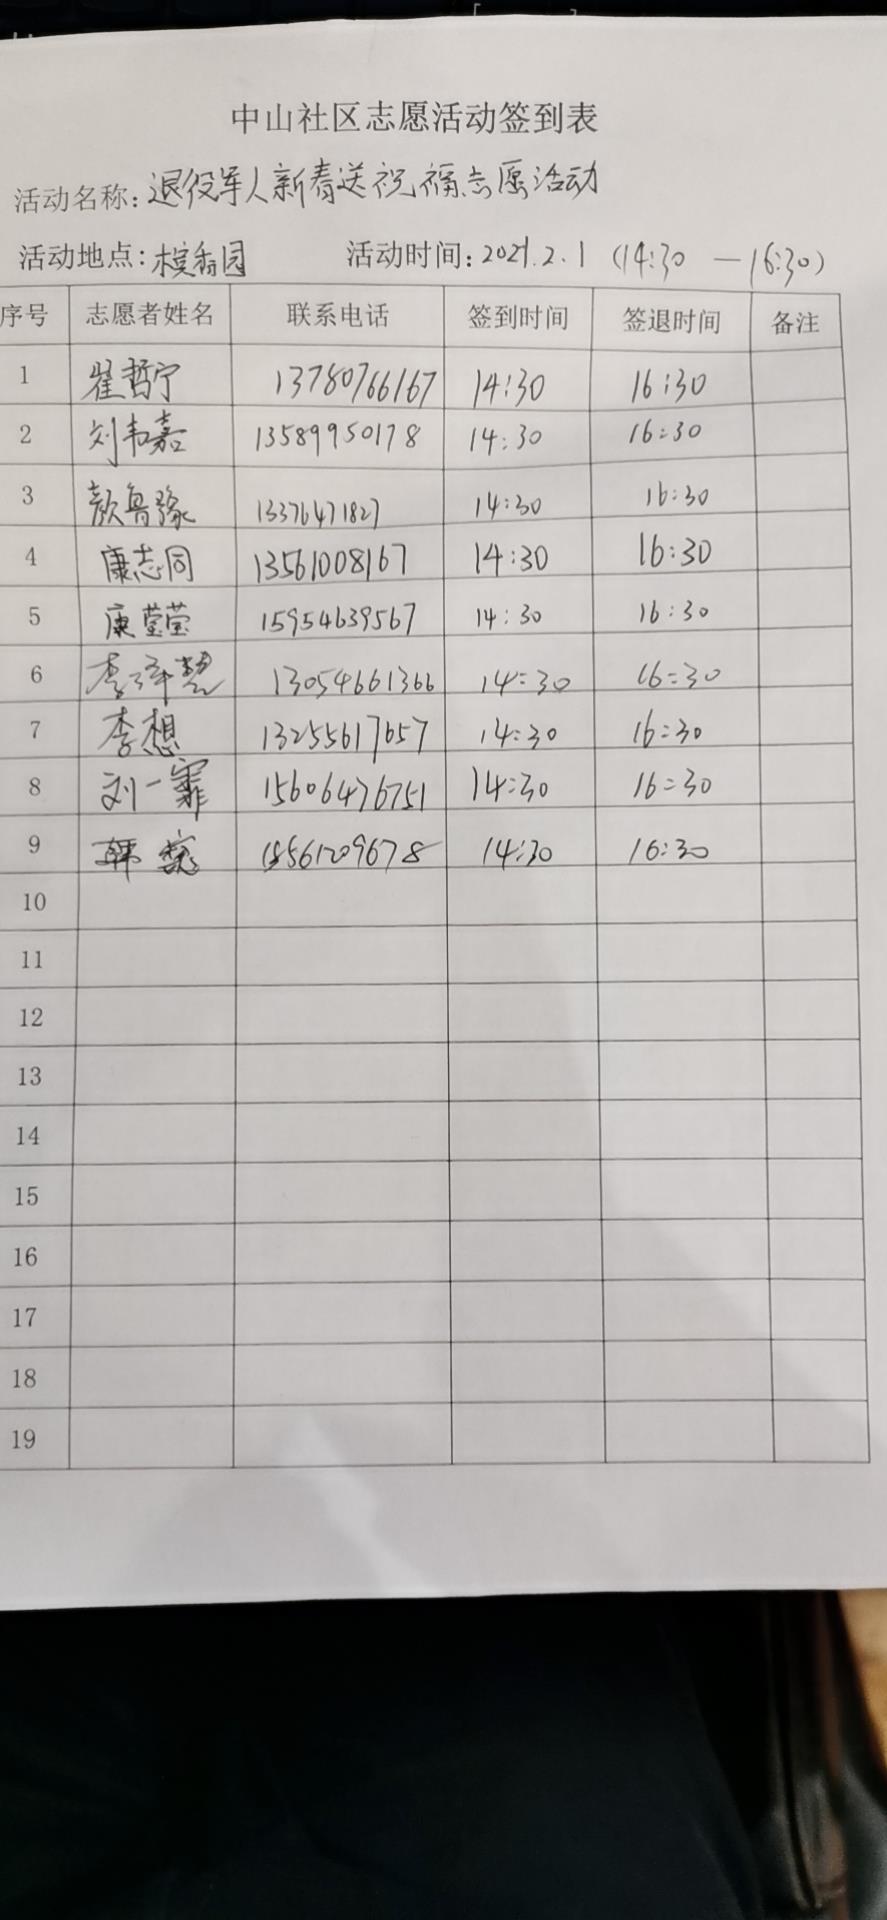 中山社区志愿活动签到表
活动名称: 退役军人新春送祝福志愿活动
活动地点: 槟香园 活动时间: 2021.2.1 (14:30 — 16:30)
序号 志愿者姓名 联系电话 签到时间 签退时间 备注
1 崔哲宁 13780766167 14:30 16:30
2 刘韦嘉 13589950178 14:30 16:30
3 颜鲁豫 13376471827 14:30 16:30
4 康志同 13561008167 14:30 16:30
5 康莹莹 15954639567 14:30 16:30
6 李 13054661366 14:30 16:30
7 李想 13255617657 14:30 16:30
8 刘一霏 15606476751 14:30 16:30
9 韩 15561209678 14:30 16:30
10
11
12
13
14
15
16
17
18
19